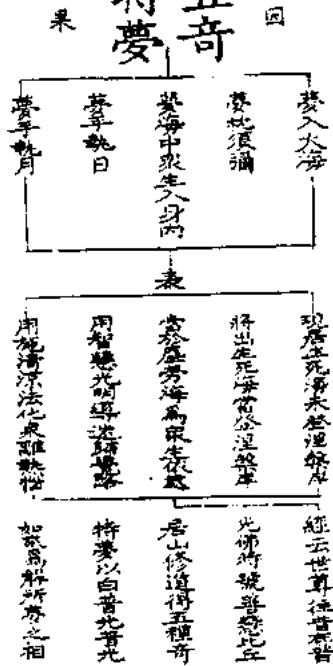 因
五奇
特夢
果
夢入大海
夢枕須彌
夢海中眾生入身內
夢手執日
夢手執月
表
現居生死海未登涅槃岸
將出生死海當登涅槃岸
當於塵勞海為眾生依處
用智慧光明導迷歸覺路
用施清凉法化衆離熱惱
經云世尊往昔有普
光佛時號善慧比丘
居山修道得五種奇
特夢以白普光普光
為解所夢之相